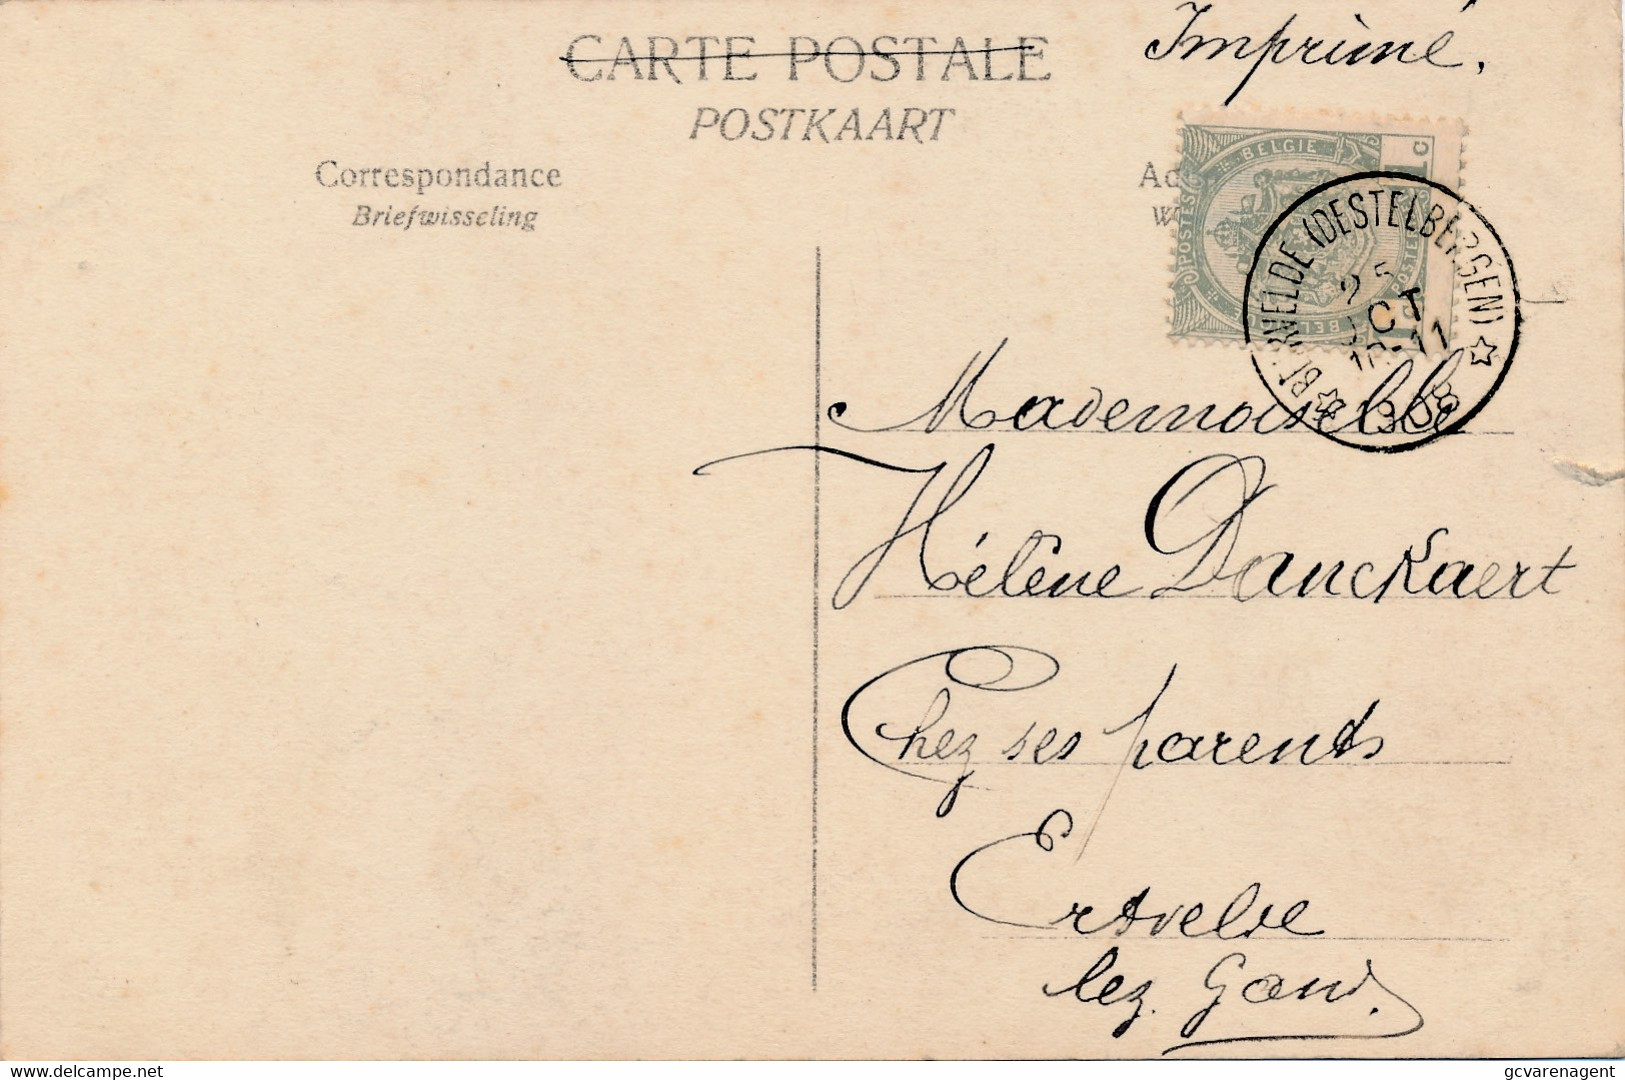 Imprimé.
CARTE POSTALE
POSTKAART
Correspondance
Briefwisseling
BELGIE
1c
POSTES
(DESTELBERGEN)
25
OCT
10-11
1908
Mademoiselle
Hélène Danckaert
Chez ses parents
Ertvelde
lez. Gand.
delcampe.net
gcvarenagent